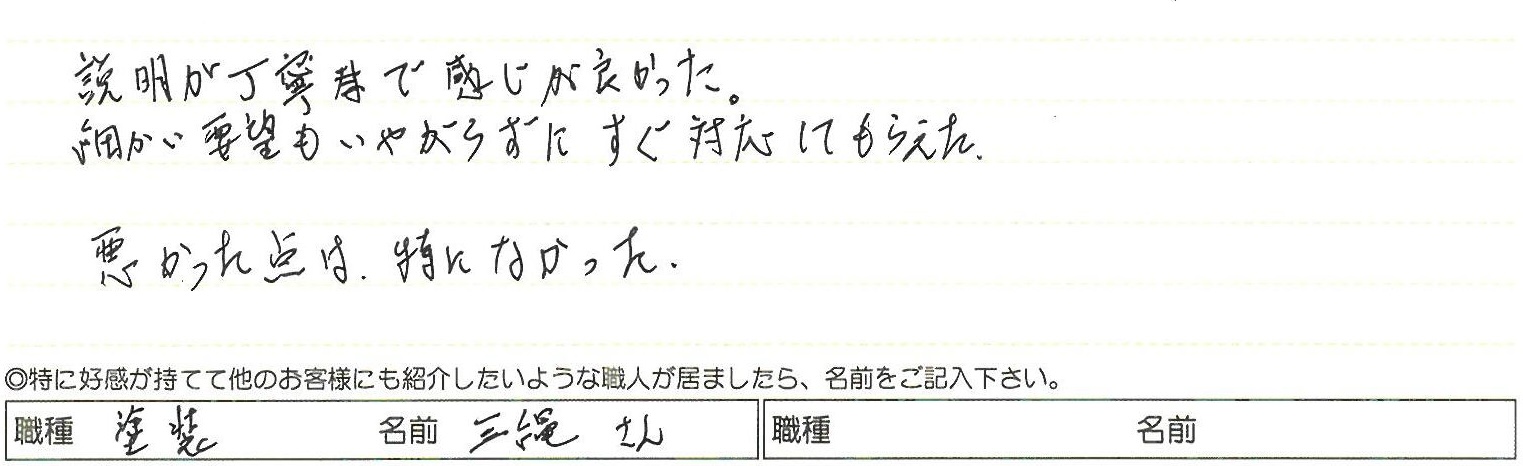 説明が丁寧で感じが良かった。
細かい要望もいやがらずにすぐ対応してもらえた.
悪かった点は、特になかった.
◎特に好感が持てて他のお客様にも紹介したいような職人が居ましたら、名前をご記入下さい。
職種 塗装 名前 三縄 さん 職種 名前